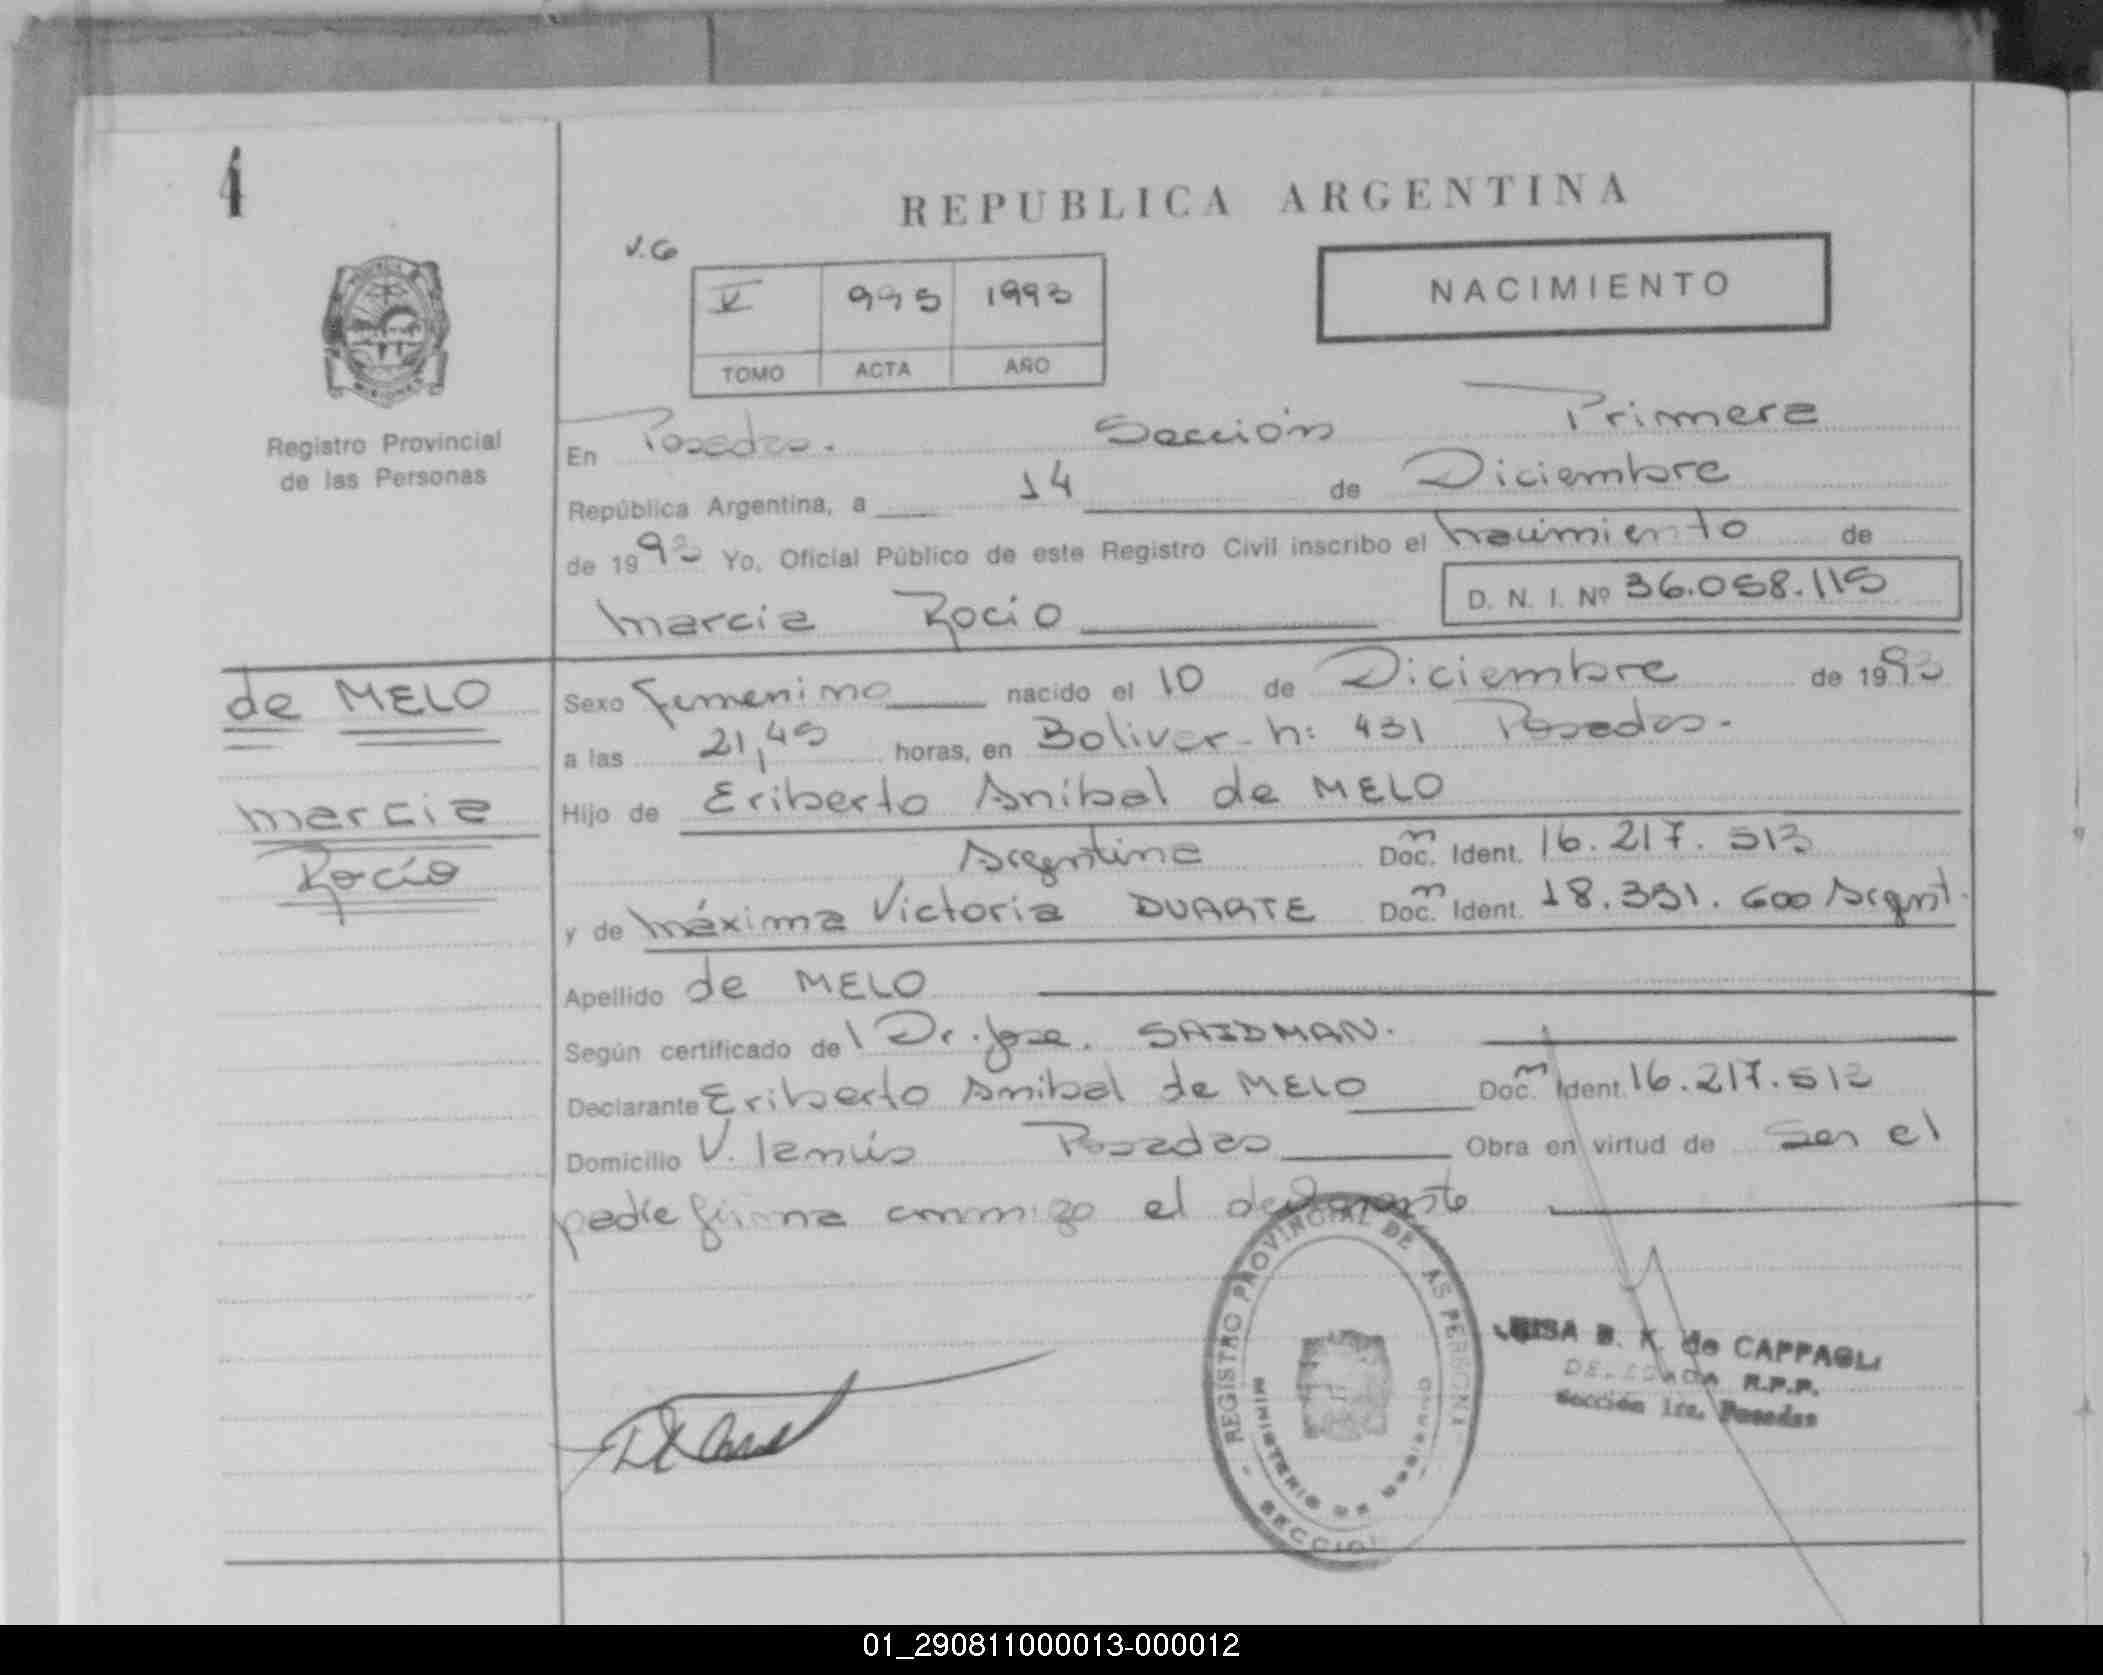 4
REPUBLICA ARGENTINA
V.G
V 995 1993
TOMO ACTA AÑO
NACIMIENTO
Registro Provincial
de las Personas
En Posadas. Sección Primera
República Argentina, a 14 de Diciembre
de 1993 Yo, Oficial Público de este Registro Civil inscribo el nacimiento de
Marcia Rocio D. N. I. Nº 36.058.115
de MELO
Marcia
Rocío
Sexo Femenino nacido el 10 de Diciembre de 1993
a las 21,45 horas, en Bolivar n: 431 Posadas.
Hijo de Eriberto Anibal de MELO
Argentina Doc. m Ident. 16.217.513
y de Máxima Victoria DUARTE Doc. m Ident. 18.391.600 Argnt.
Apellido de MELO
Según certificado del Dr. Jose. SAIDMAN.
Declarante Eriberto Anibal de MELO Doc. m Ident. 16.217.513
Domicilio V. lanús Posadas Obra en virtud de ser el
padre firma conmigo el declarante
REGISTRO PROVINCIAL DE LAS PERSONAS
MINISTERIO DE GOBIERNO
- SECCION
LUISA B. K. de CAPPAGLI
DELEGADA R.P.P.
Sección 1ra. Posadas
01_290811000013-000012